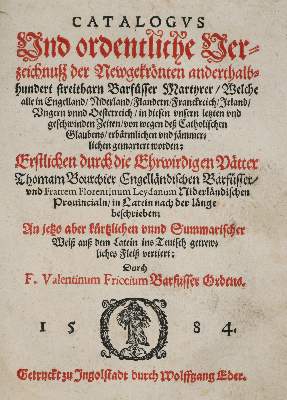 CATALOGVS
Vnd ordentliche Ver-
zeichnuß der Newgekrönten anderthalb-
hundert streitbarn Barfüsser Martyrer / Welche
alle in Engelland / Niderland / Flandern / Franckreich / Irland /
Vngern vnnd Oesterreich / in diesen vnsern letzten vnd
geschwinden Zeiten / von wegen deß Catholischen
Glaubens / erbärmlichen vnd jämmer-
lichen gemartert worden:
Erstlichen durch die Ehrwirdigen Vätter
Thomam Bourchier Engelländischen Barfüsser /
vnd Fratrem Florentinum Leydanum Niderländischen
Prouincialn / in Latein nach der länge
beschrieben:
An jetzo aber kürtzlichen vnnd Summarischer
Weiß auß dem Latein ins Teutsch getrew-
liches Fleiß vertiert:
Durch
F. Valentinum Fricium Barfusser Ordens.
1584.
Getruckt zu Ingolstadt durch Wolffgang Eder.